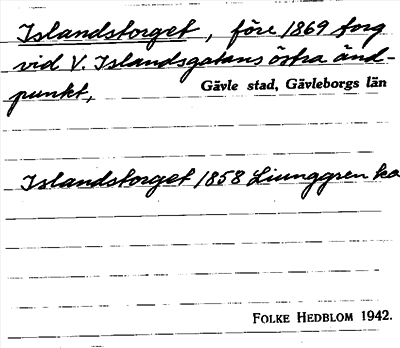 Islandstorget, före 1869 torg
vid V. Islandsgatans östra änd-
punkt,
Gävle stad, Gävleborgs län
Islandstorget 1858 Liunggren ka
FOLKE HEDBLOM 1942.